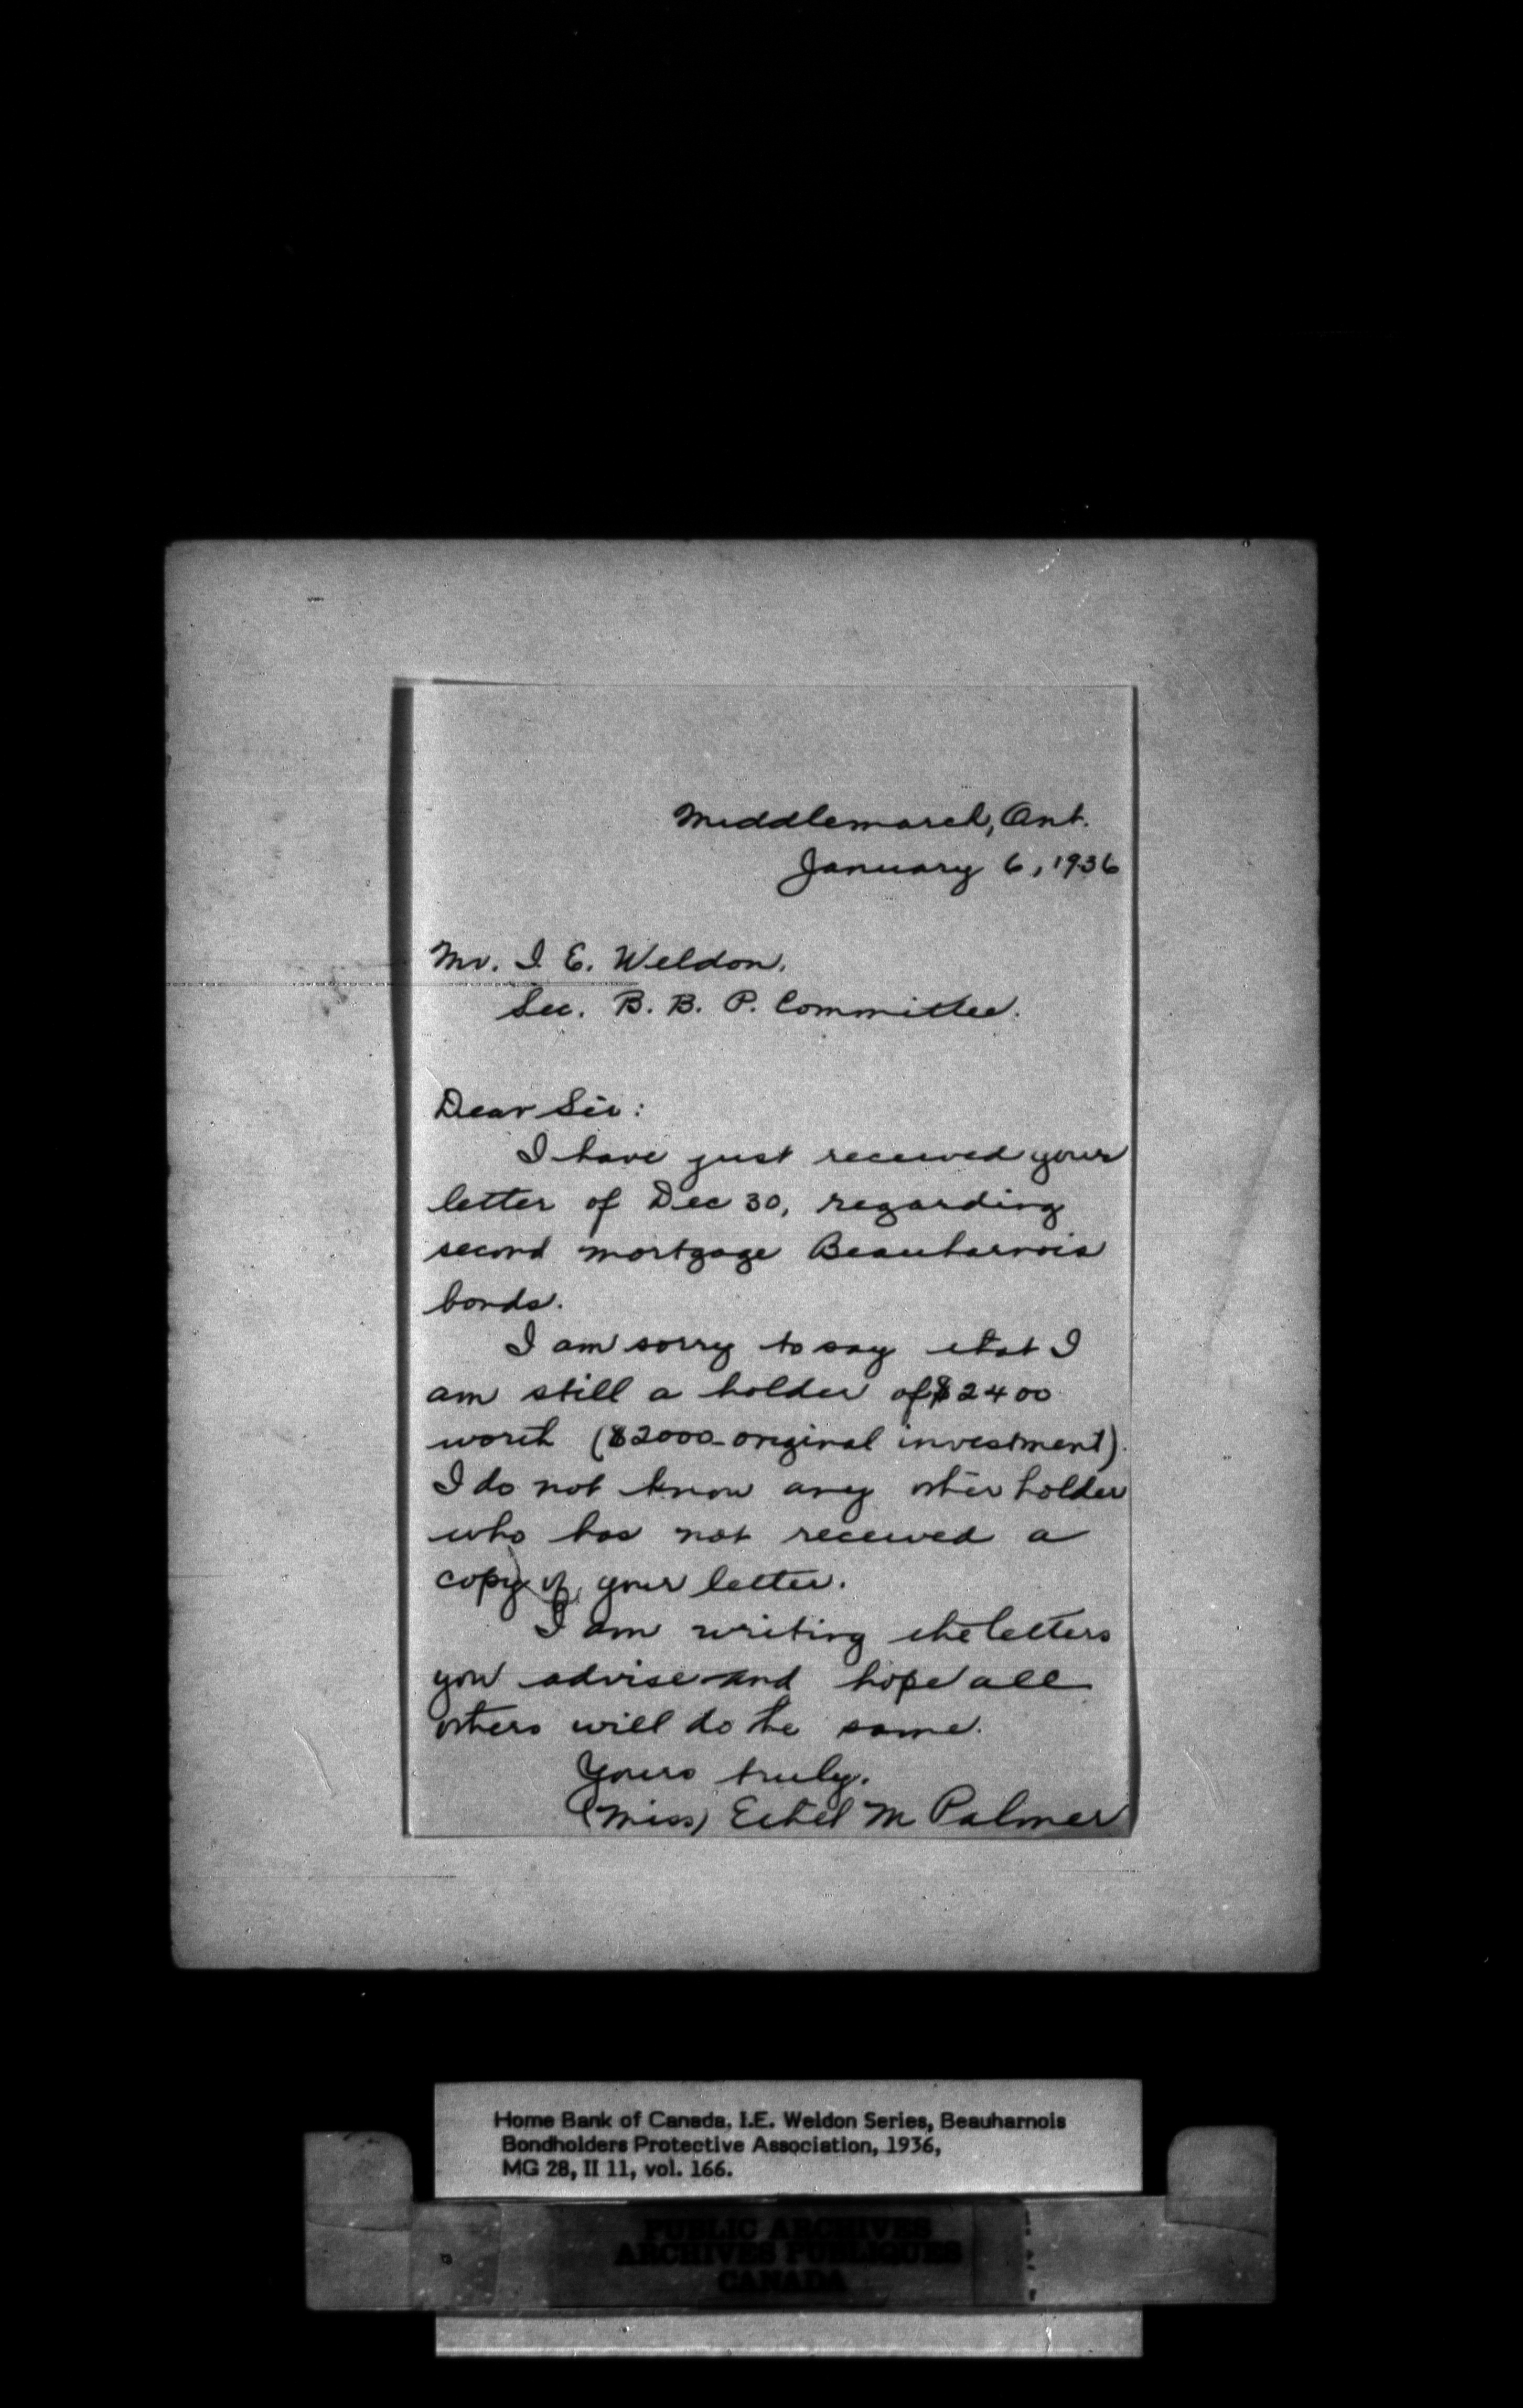 Middlemarch, Ont.
January 6, 1936
Mr. I. E. Weldon,
Sec. B. B. P. Committee.
Dear Sir:
I have just received your
letter of Dec 30, regarding
second mortgage Beauharnois
bonds.
I am sorry to say that I
am still a holder of $2400
worth ($2000 - original investment).
I do not know any other holder
who has not received a
copy of your letter.
I am writing the letters
you advise and hope all
others will do the same.
Yours truly.
(Miss) Ethel M Palmer
Home Bank of Canada, I.E. Weldon Series, Beauharnois
Bondholders Protective Association, 1936,
MG 28, II 11, vol. 166.
PUBLIC ARCHIVES
ARCHIVES PUBLIQUES
CANADA